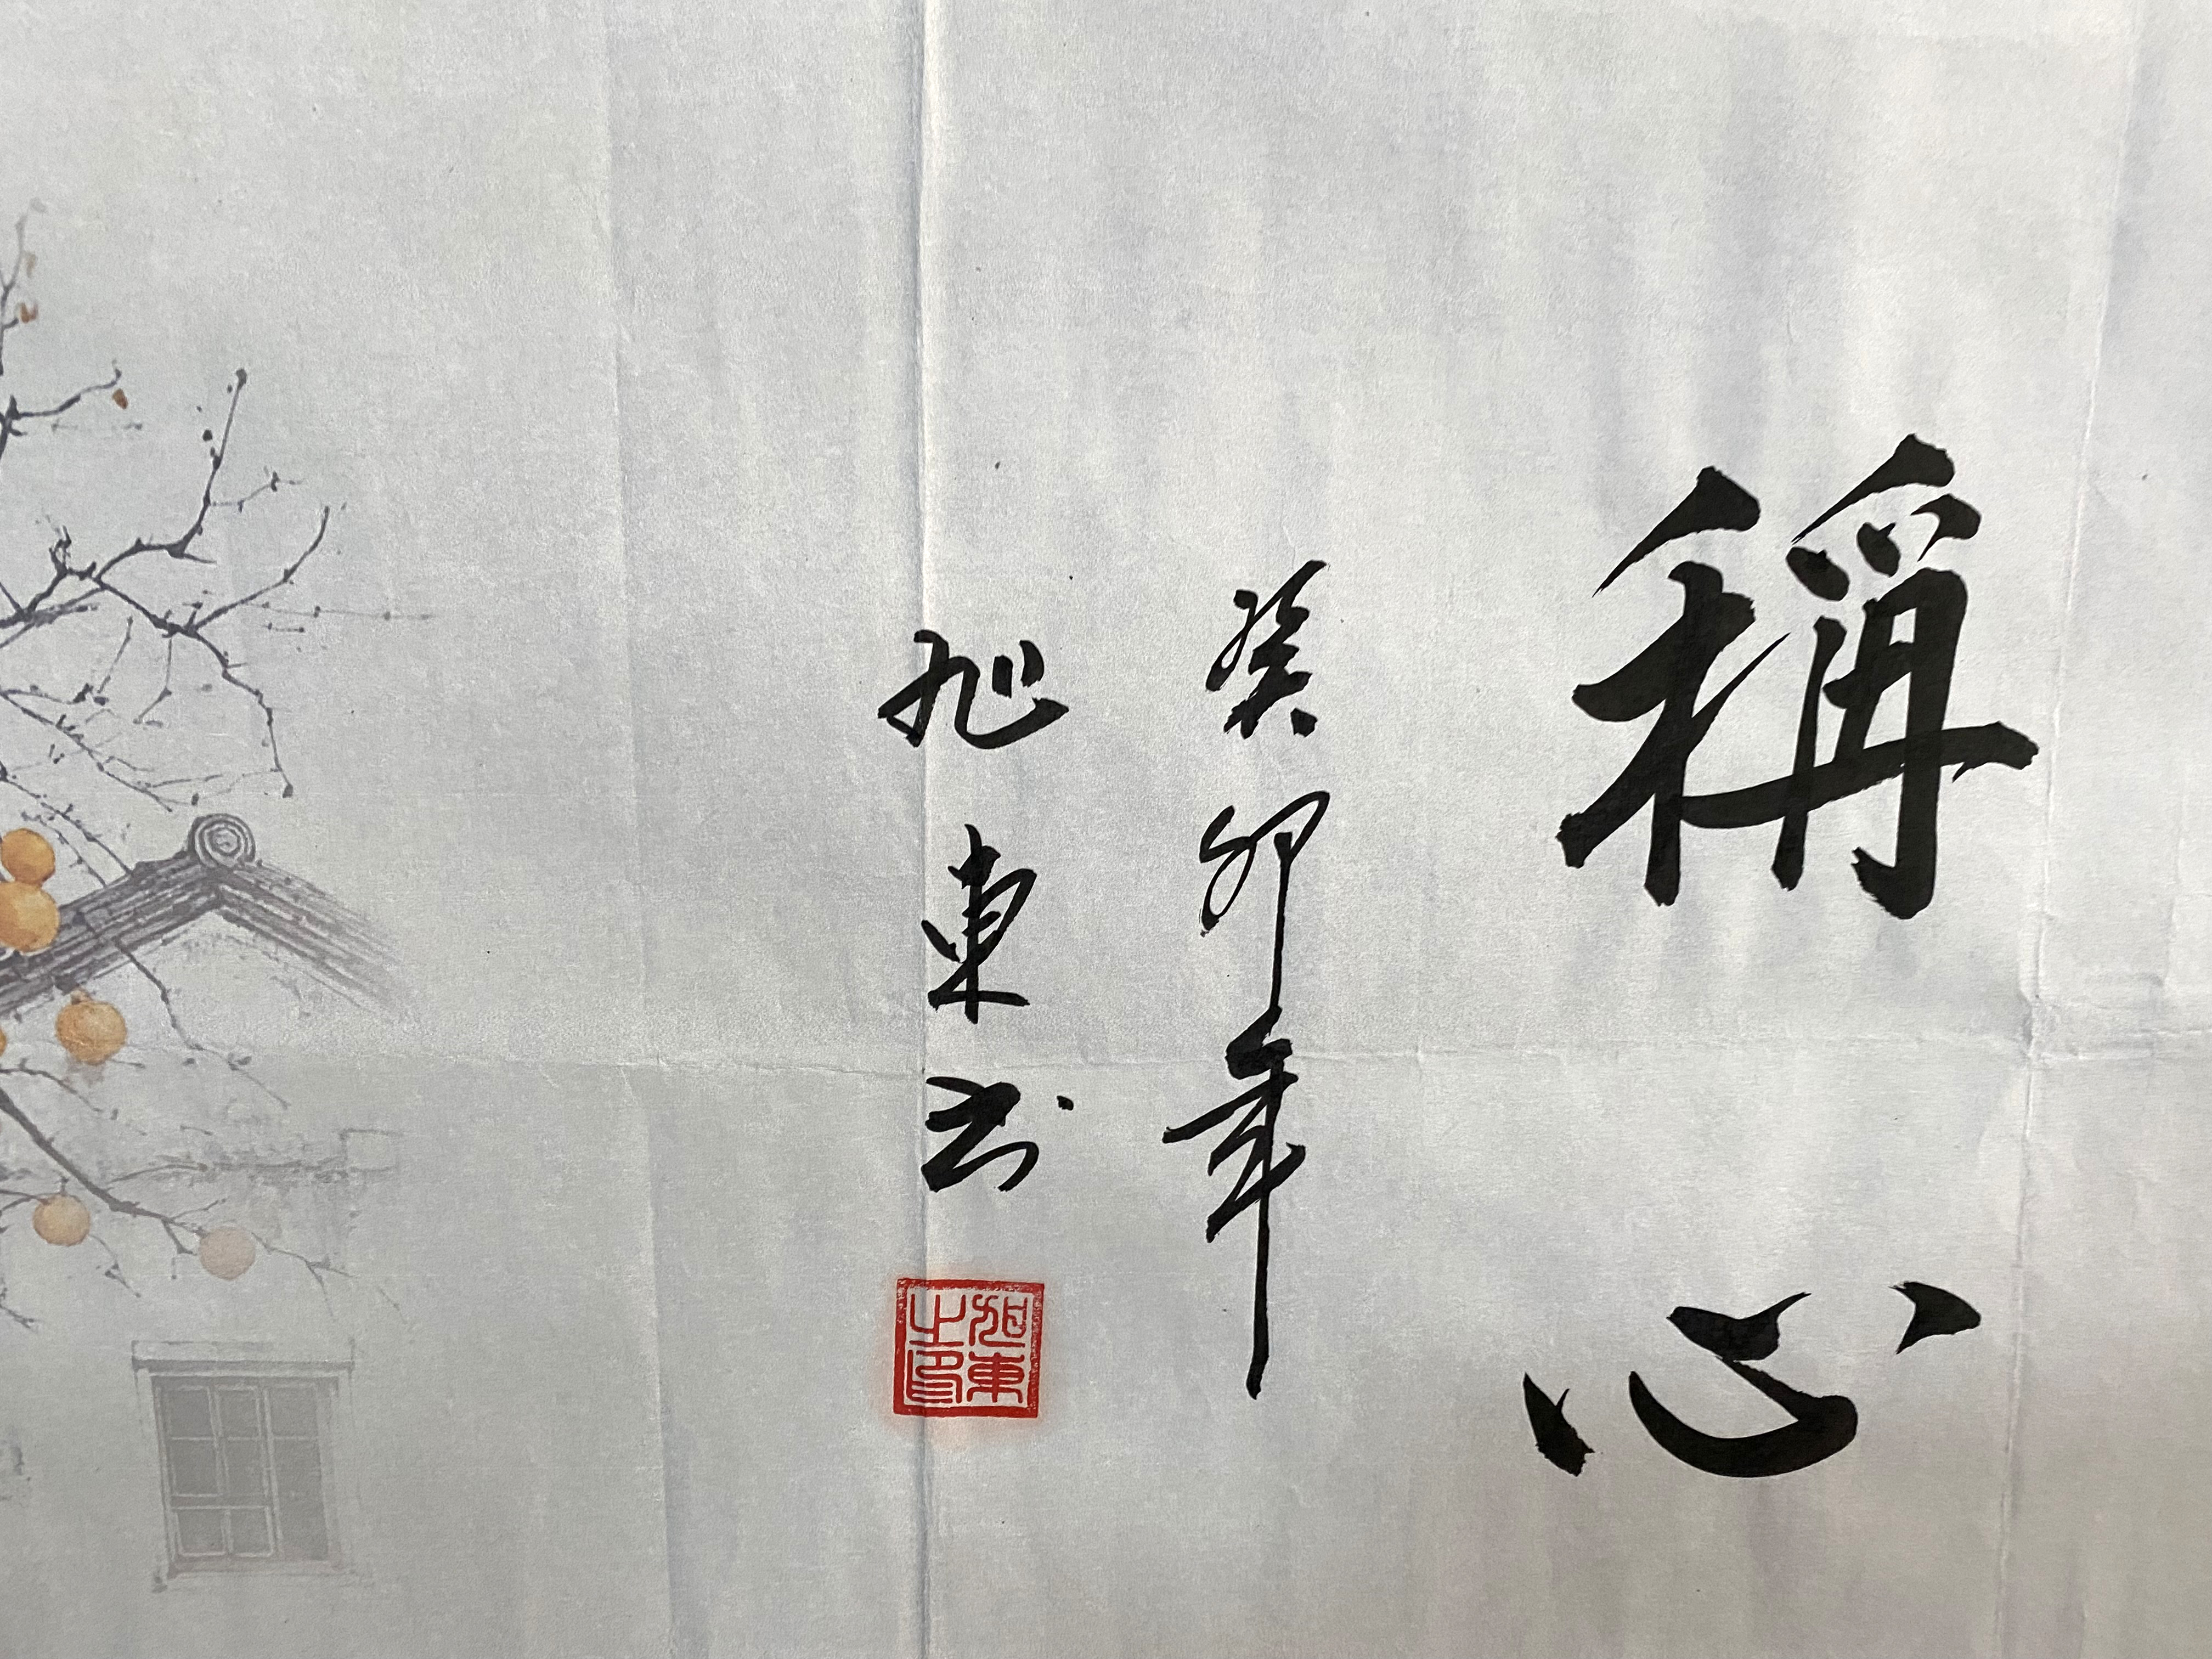 稱心
癸卯年
旭東书
旭東之印